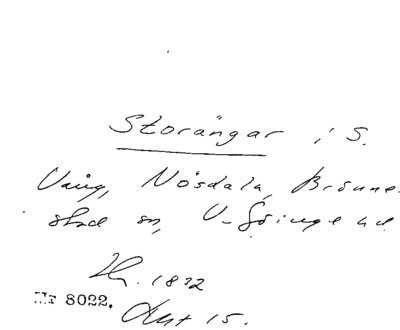 Storängar i S.
Vång, Nösdala, Brönne-
stad sn, V-Göinge hd
1832
Nr 8022. Akt 15.